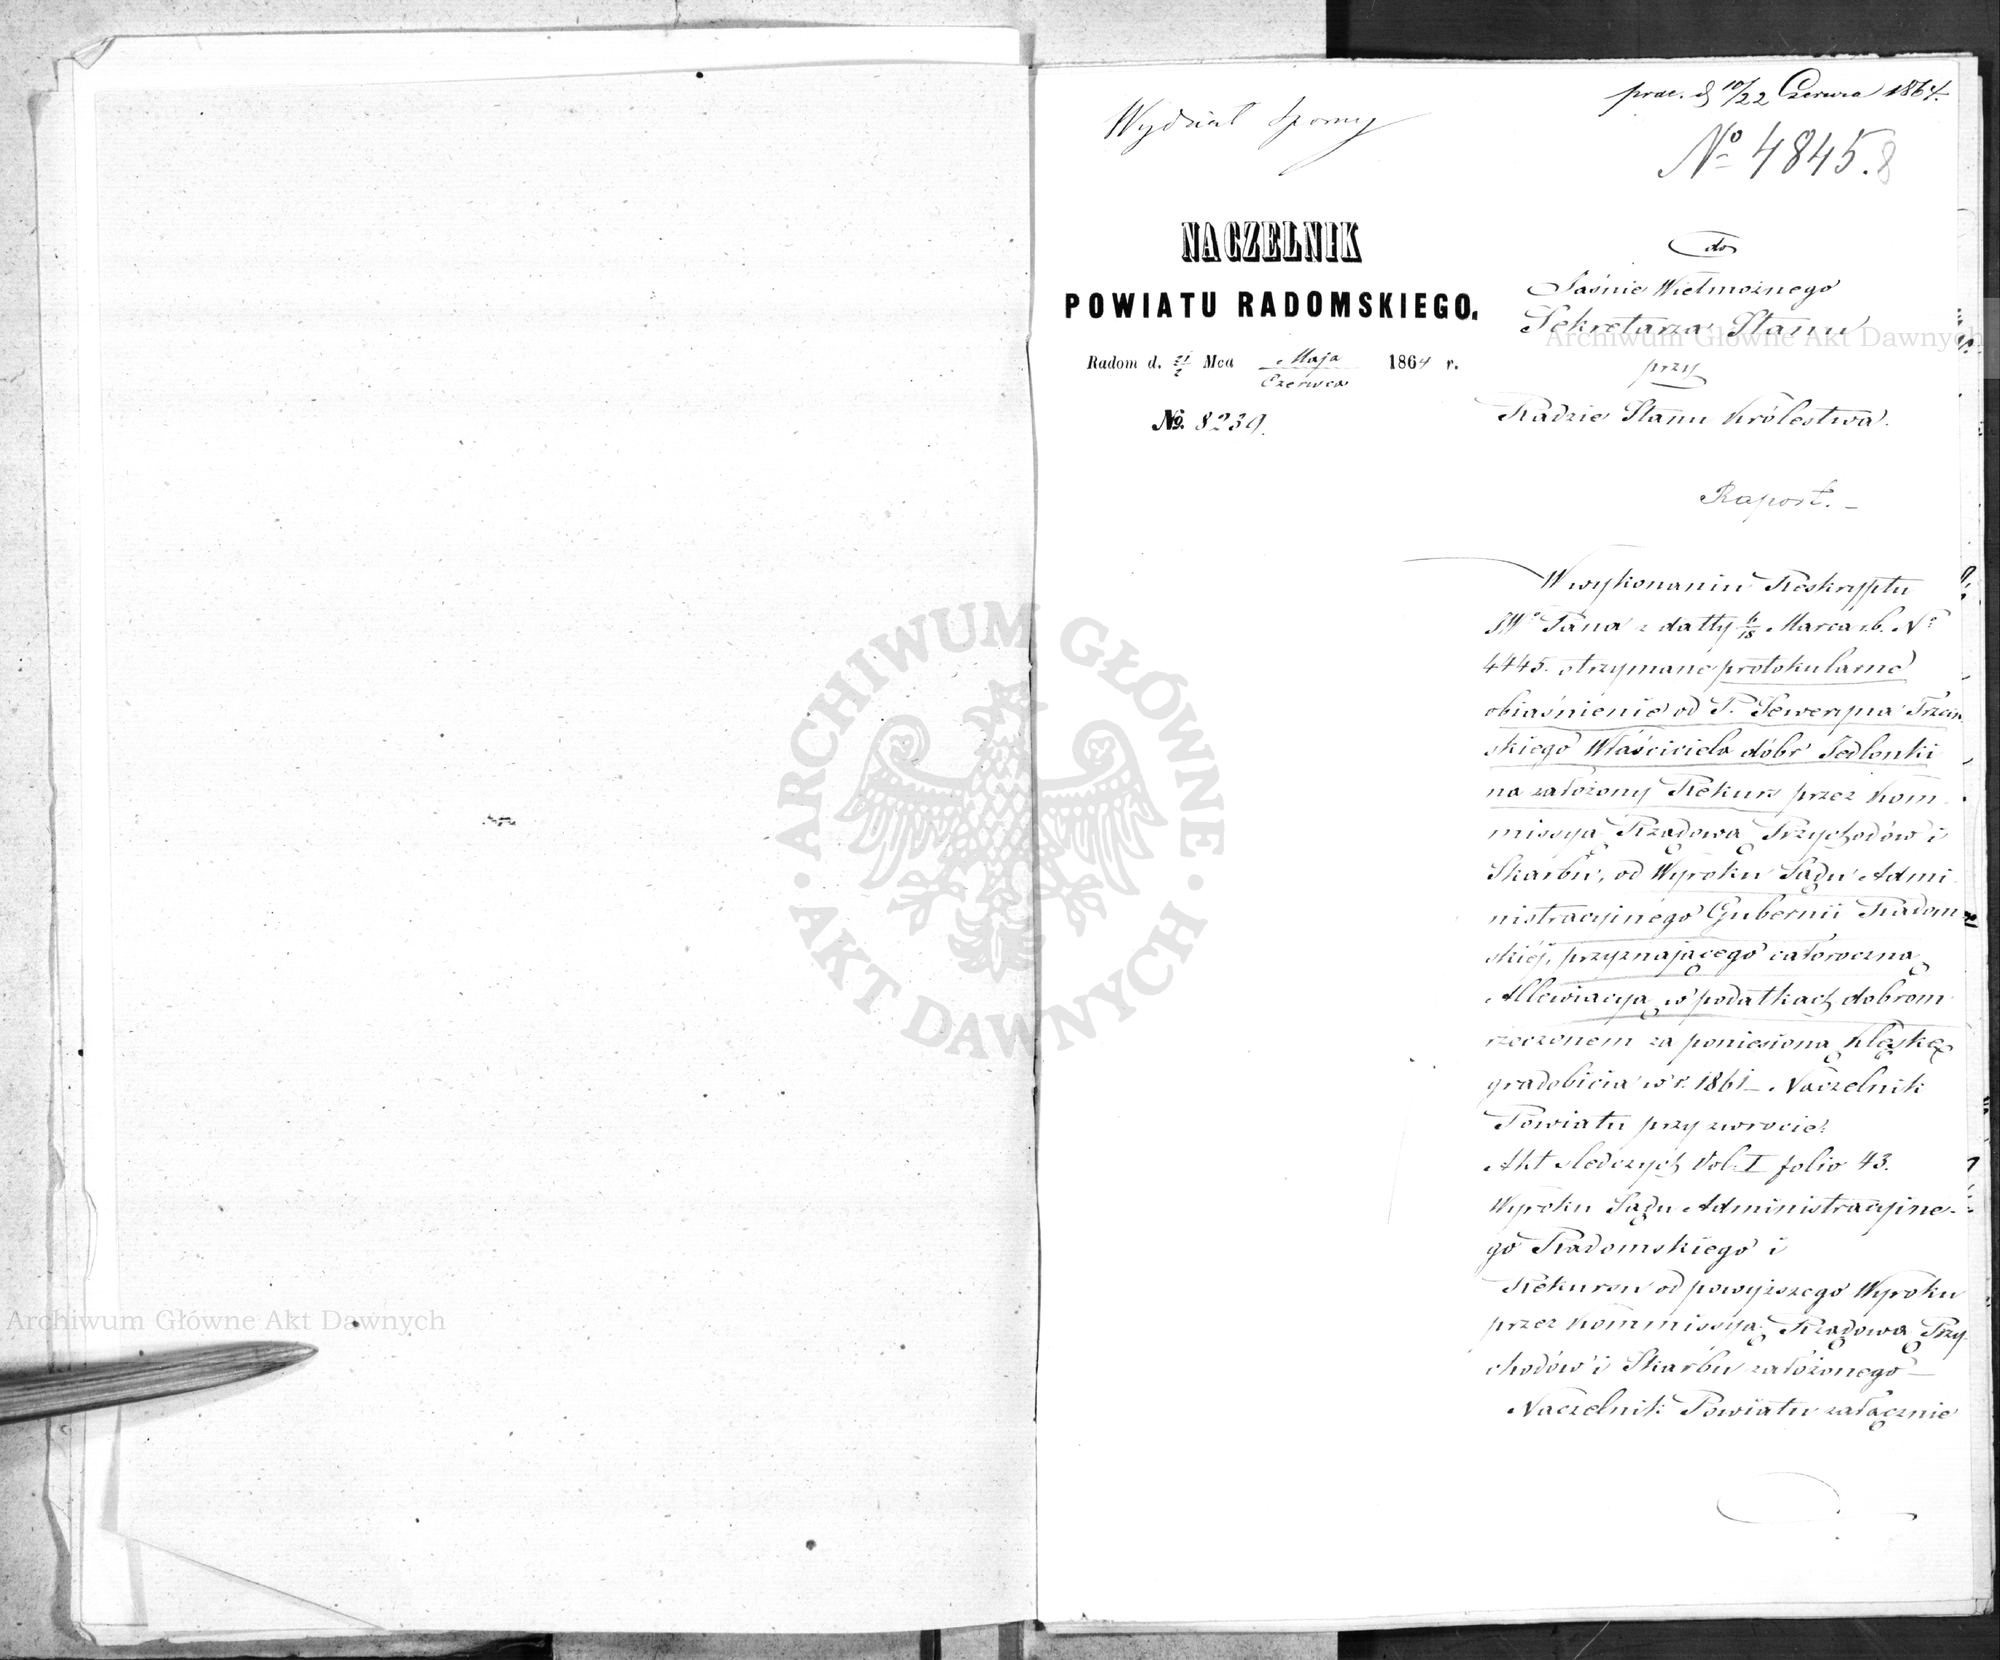 prae. d 10/22 Czerwca 1864.
Wydział Sporny
No 4845.
8
NACZELNIK
POWIATU RADOMSKIEGO.
Radom d. 21/2 Mca Maja/Czerwca 1864 r.
No. 8239.
do
Jaśnie Wielmożnego
Sekretarza Stanu
przy
Radzie Stanu Królestwa.
Raport. –
W wykonaniu Reskryptu
JWo Pana z datty 6/18 Marca r.b. No
4445. otrzymane protokularne
obiaśnienie od P. Seweryna Trzciń
skiego Właściciela dóbr Jedlonki
na założony Rekurs przez Kom
missyą Rządową Przychodów i
Skarbu, od Wyroku Sądu Admi
nistracyjnego Gubernii Radom
skiéj, przyznającego całoroczną
Allewiacyą w podatkach dobrom
rzeczonem za poniesioną klęskę
gradobicia w r. 1861 – Naczelnik
Powiatu przy zwrocie:
Akt śledczych Vol. I folio 43.
Wyroku Sądu Administracyjne-
go Radomskiego i
Rekursu od powyższego Wyroku
przez Kommissyą Rządową Przy-
chodów i Skarbu założonego –
Naczelnik Powiatu załącznie
Archiwum Główne Akt Dawnych
Archiwum Główne Akt Dawnych
ARCHIWUM GŁÓWNE
· AKT DAWNYCH ·